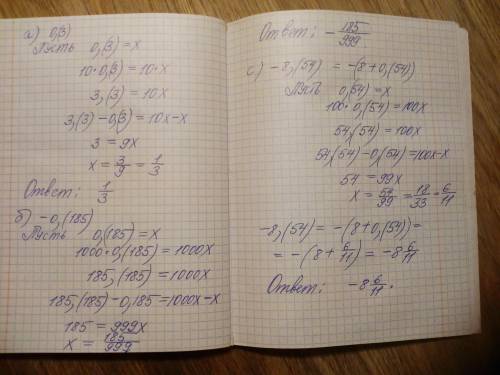 а) 0,(3)
Пусть 0,(3) = x
10·0,(3) = 10·x
3,(3) = 10x
3,(3) - 0,(3) = 10x-x
3 = 9x
x = 3/9 = 1/3
Ответ: 1/3
б) -0,(185)
Пусть 0,(185) = x
1000·0,(185) = 1000x
185,(185) = 1000x
185,(185) - 0,185 = 1000x-x
185 = 999x
x = 185/999
Ответ: -185/999
с) -8,(54) = -(8+0,(54))
Пусть 0,(54) = x
100·0,(54) = 100x
54,(54) = 100x
54,(54) - 0,(54) = 100x-x
54 = 99x
x = 54/99 = 18/33 = 6/11
-8,(54) = -(8+0,(54)) =
= -(8+6/11) = -8 6/11
Ответ: -8 6/11.